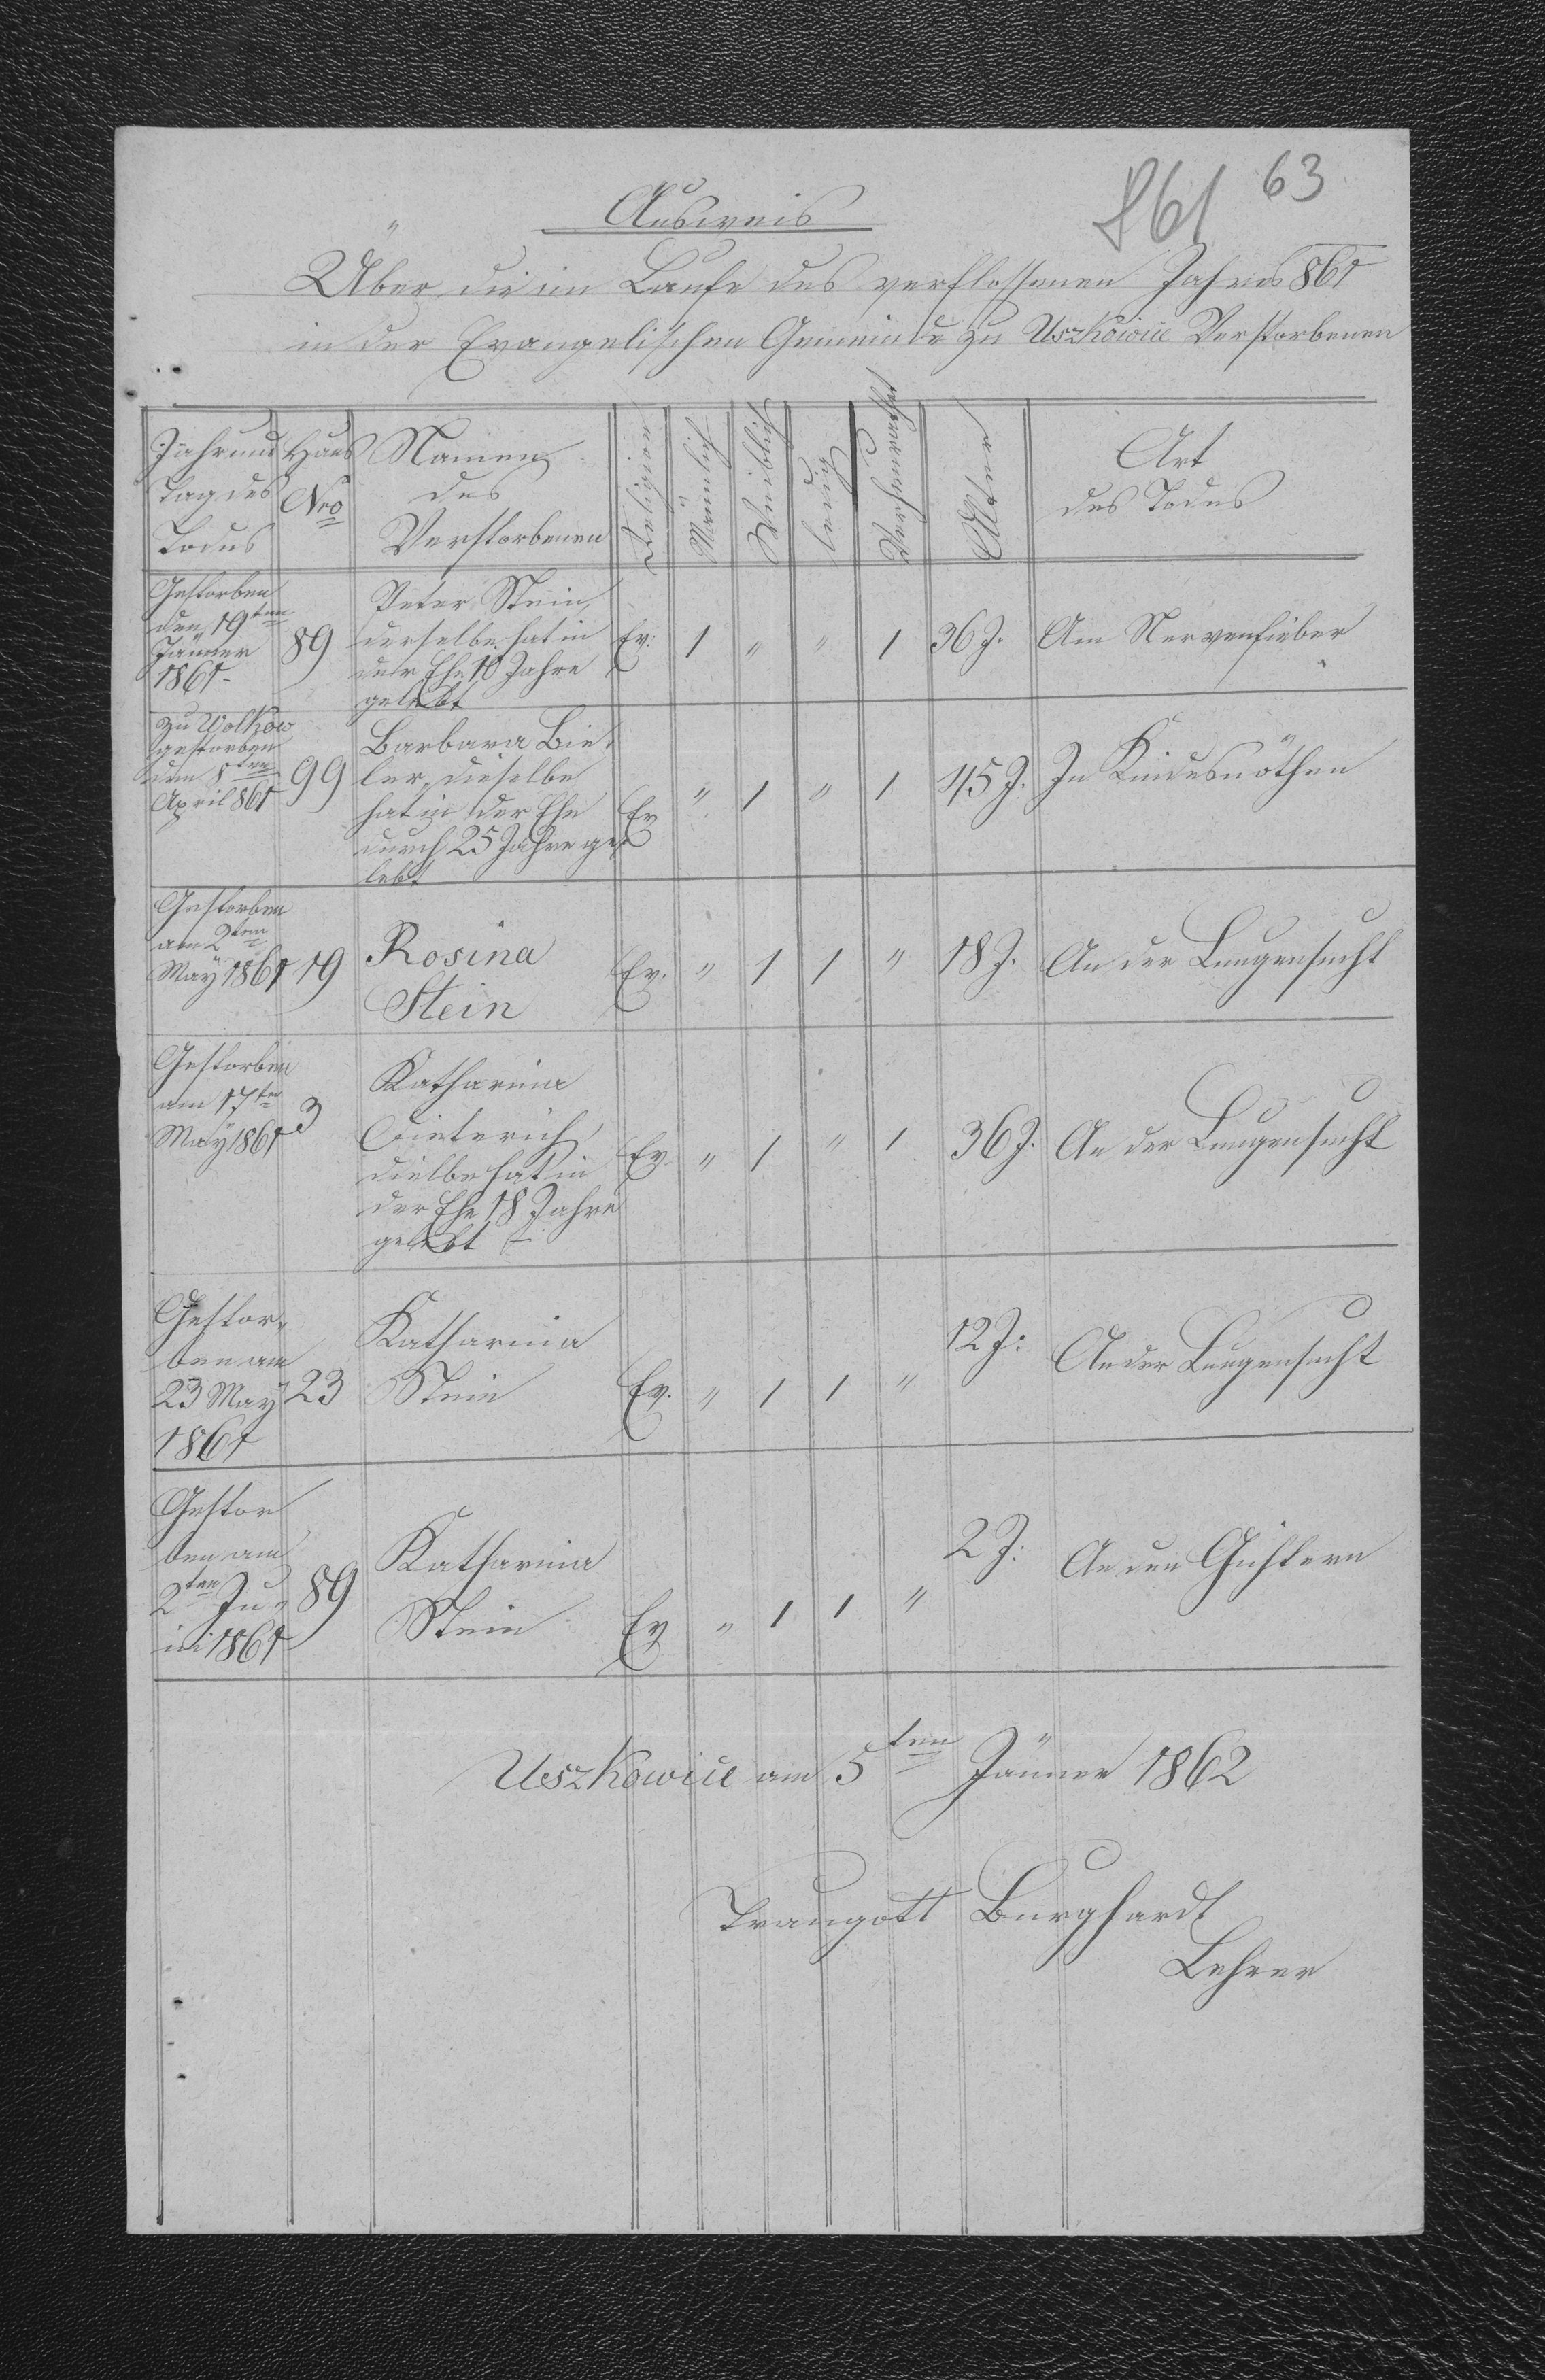 861 63
Ausweis
Über die im Laufe des verflossenen Jahres 861
in der Evangelischen Gemeinde zu Uszkowice Verstorbenen
Jahr und Tag des Todus | Haus Nro | Namen des Verstorbenen | Religion | Männlich | Weiblich | ledig | Verheurathet | Alter | Art des Todes
Gestorben
den 19ten
Jänner
1861-
89
Peter Stein,
derselbe hat in
der Ehe 10 Jahre
gelebt
Ev: 1 " " 1 36 J. Am Nervenfieber
zu Wolkow
gestorben
den 8ten
April 861
99
Barbara Bie-
ler, dieselbe
hat in der Ehe
durch 25 Jahre ge-
lebt
Ev " 1 " 1 45 J. In Kindesnöthen
Gestorben
am 2ten
May 1861
19
Rosina
Stein
Ev. " 1 1 " 18 J. An der Lungensucht
Gestorben
am 17ten
May 1861
3
Katharina
Dieterich,
dielbe hat in
der Ehe 18 Jahre
gelebt
Ev " 1 " 1 36 J. An der Lungensucht
Gestor-
ben am
23 May
1861
23
Katharina
Stein
Ev. " 1 1 " 12 J: An der Lungensucht
Gestor
ben am
2ten Ju-
ni 1861
89
Katharina
Stein
Ev " 1 1 " 2 J: An den Gichtern
Uszkowice am 5ten Jänner 1862
Traugott Burghardt
Lehrer